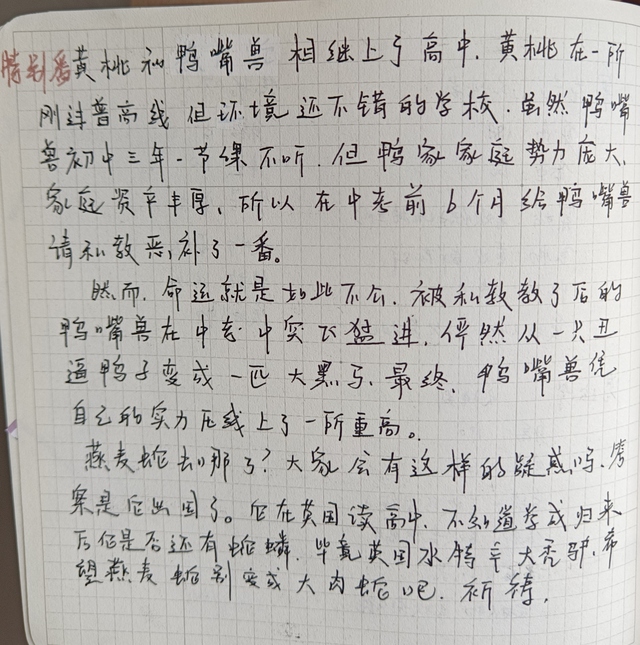 特别番黄桃和鸭嘴兽 相继上了高中. 黄桃在一所
刚过普高线 但环境还不错的学校. 虽然鸭嘴
兽初中三年一节课不听. 但鸭家家庭势力庞大.
家庭资产丰厚. 所以在中考前6个月给鸭嘴兽
请私教恶补了一番。
然而. 命运就是如此不公. 被私教教了后的
鸭嘴兽在中考中突飞猛进. 俨然从一只丑
逼鸭子变成一匹大黑马. 最终. 鸭嘴兽凭
自己的实力压线上了一所重高。
燕麦蛇去哪了? 大家会有这样的疑惑吗. 答
案是它出国了。它在英国读高中. 不知道学成归来
后它是否还有蛇鳞. 毕竟英国水特产大秃驴. 希
望燕麦蛇别变成大肉蛇吧. 祈祷.